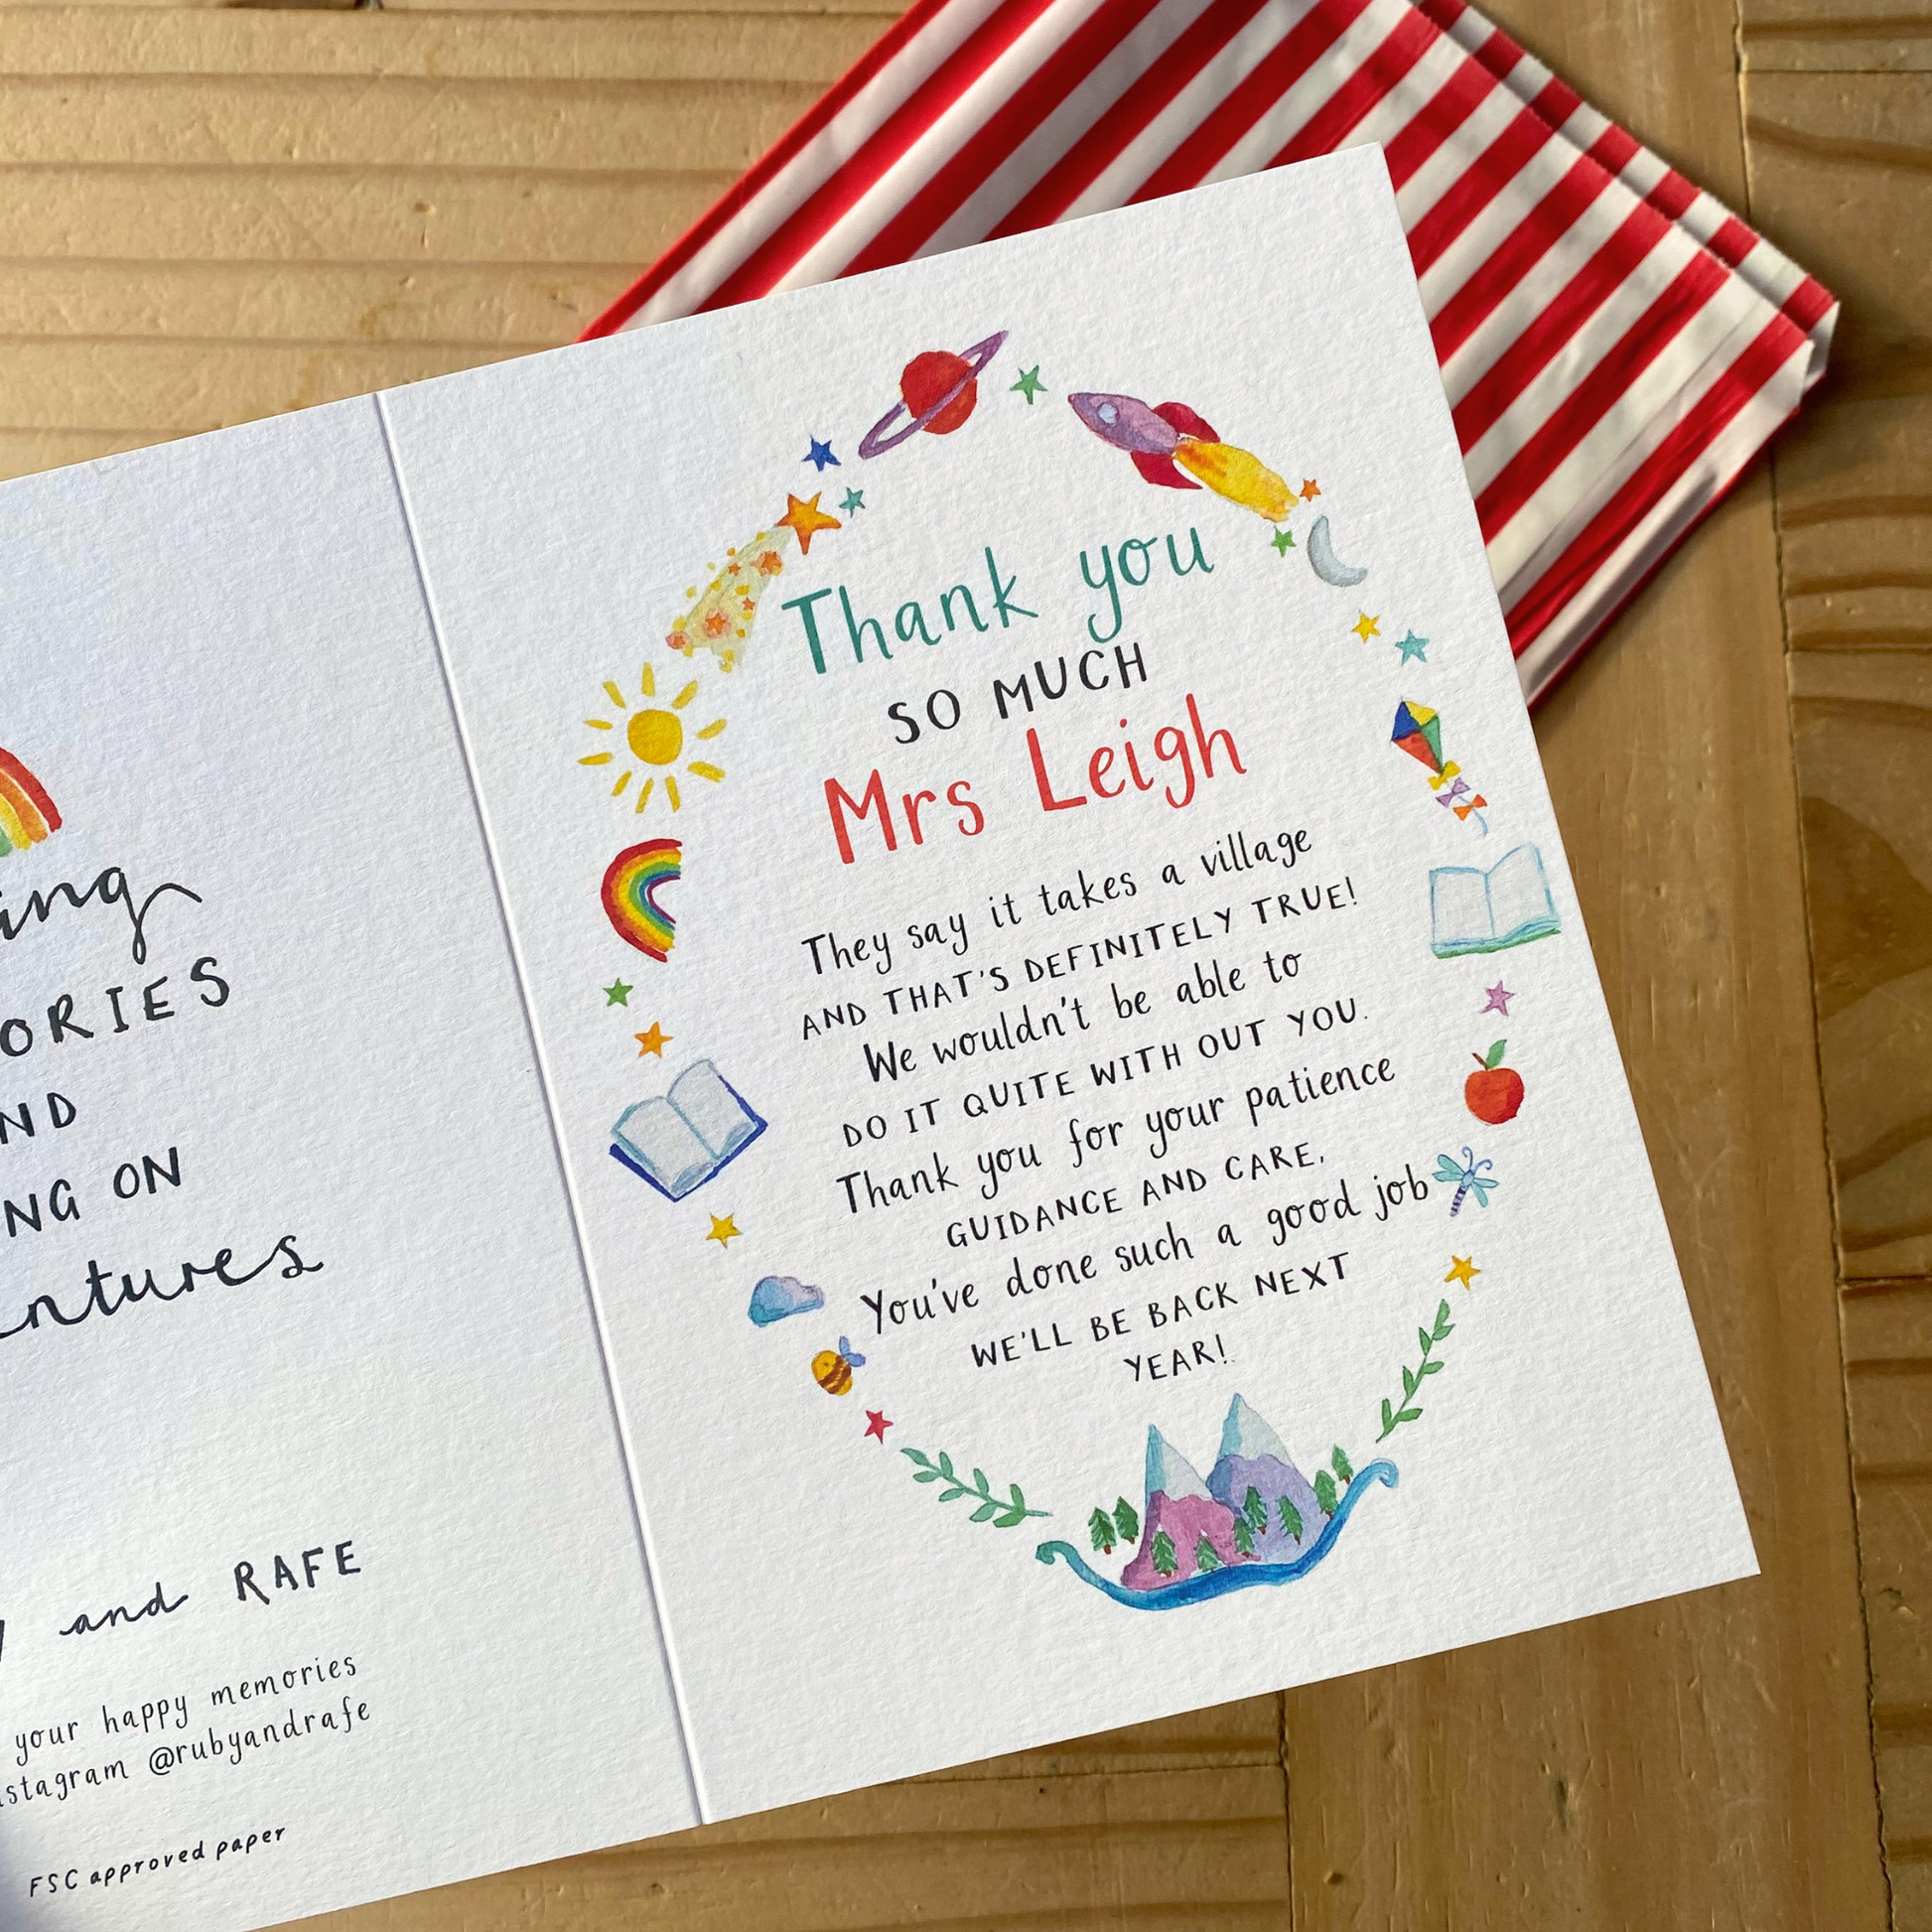 ing
ORIES
ND
NG ON
ntures
and RAFE
your happy memories
stagram @rubyandrafe
FSC approved paper
Thank you
SO MUCH
Mrs Leigh
They say it takes a village
AND THAT'S DEFINITELY TRUE!
We wouldn't be able to
DO IT QUITE WITH OUT YOU.
Thank you for your patience
GUIDANCE AND CARE,
You've done such a good job
WE'LL BE BACK NEXT
YEAR!